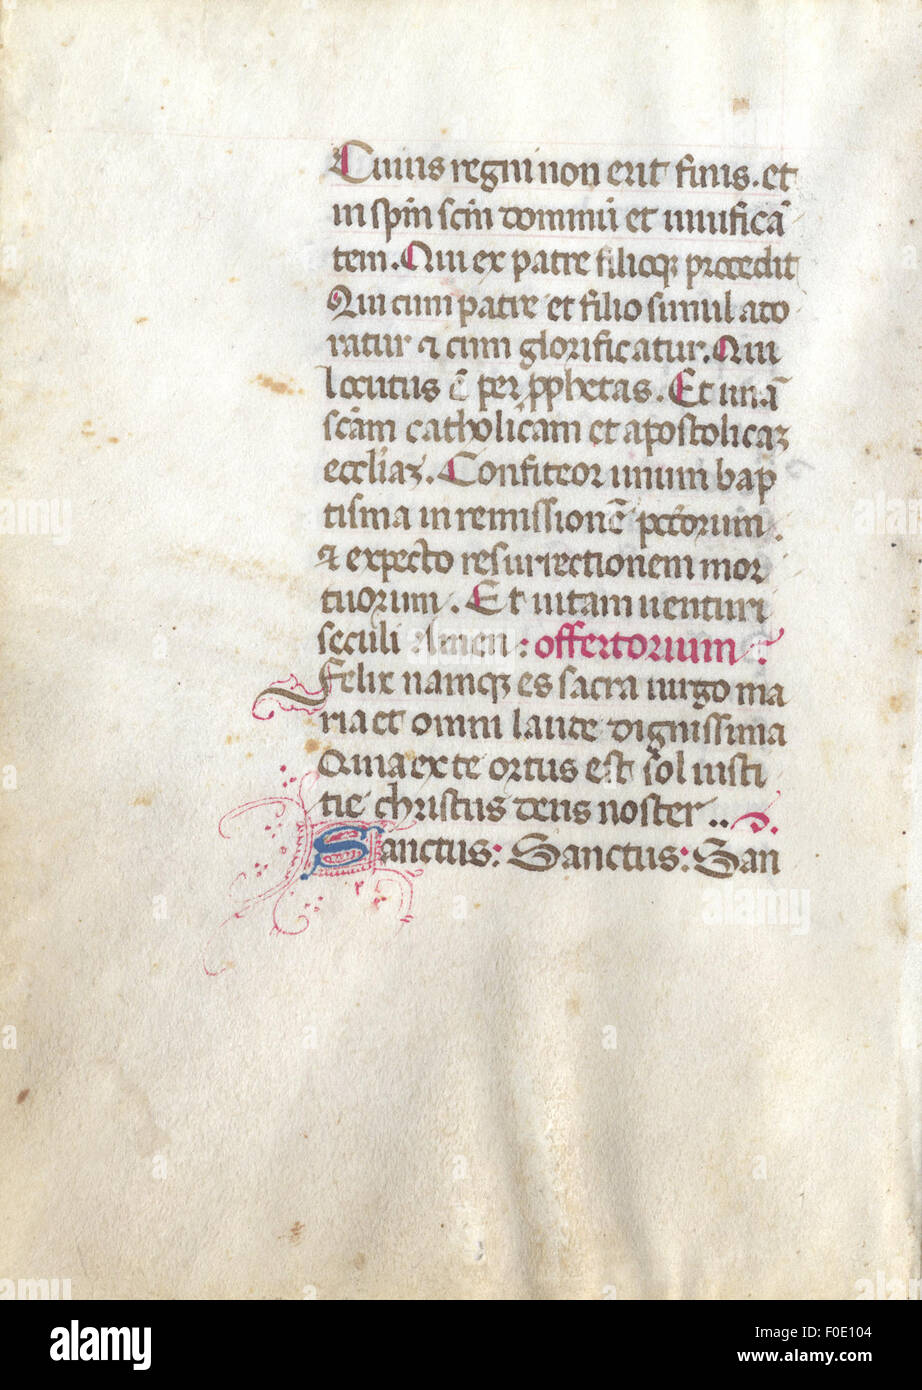 Cuius regni non erit finis. et
in spm̄ scm̄ dominū et uiuificā
tem. Qui ex patre filioqꝫ procedit
Qui cum patre et filio simul ado
ratur ⁊ cum glorificatur. Qui
locutus ē per ꝓphetas. Et unā
scām catholicam et apostolicaꝫ
eccliaꝫ. Confiteor unum bap
tisma in remissionē pctorum.
⁊ expecto resurrectionem mor
tuorum. Et uitam uenturi
seculi Amen: offertorium
Felix namqꝫ es sacra uirgo ma
ria et omni laude dignissima
Quia ex te ortus est sol iusti
tie christus deus noster..
Sanctus: Sanctus: San
alamy
Image ID: F0E104
www.alamy.com